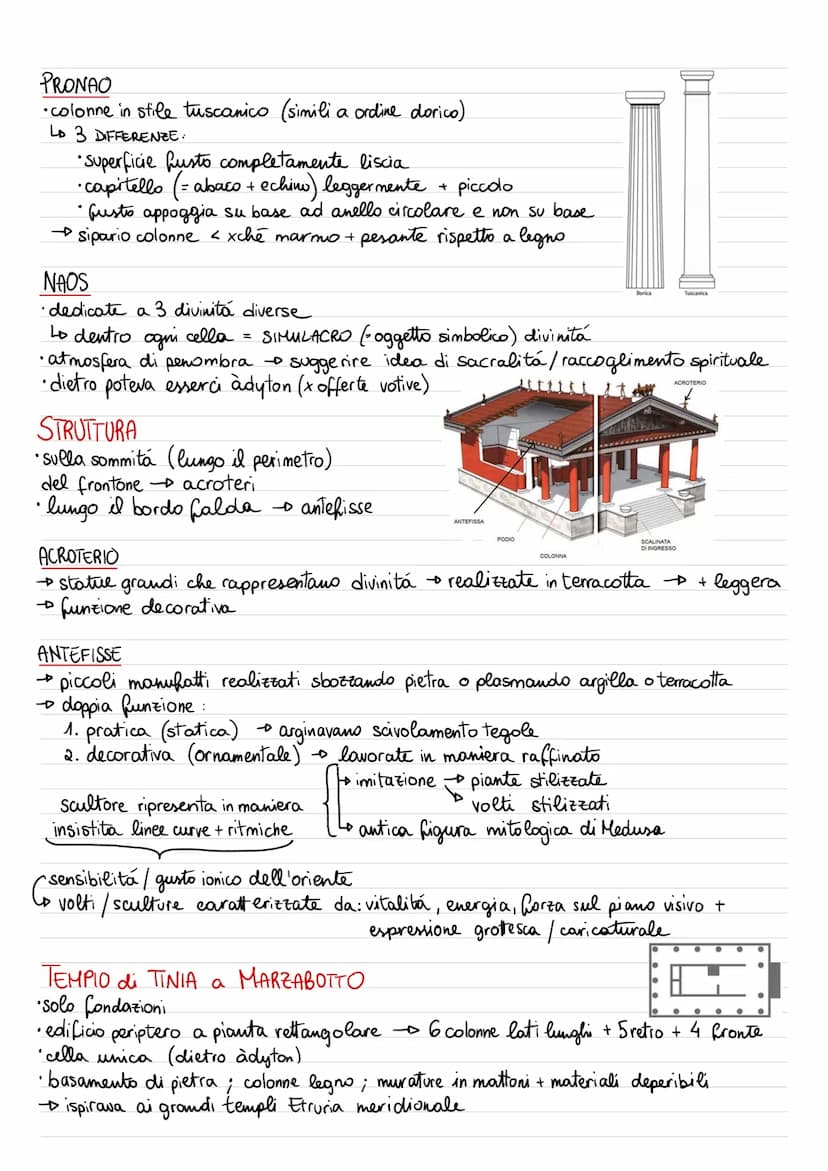 PRONAO
•colonne in stile tuscanico (simili a ordine dorico)
↳ 3 DIFFERENZE:
•superficie fusto completamente liscia
•capitello (= abaco + echino) leggermente + piccolo
•fusto appoggia su base ad anello circolare e non su base
→ sipario colonne < xché marmo + pesante rispetto a legno
Dorica
Tuscanica
NAOS
•dedicate a 3 divinitá diverse
↳ dentro ogni cella = SIMULACRO (=oggetto simbolico) divinitá
•atmosfera di penombra → suggerire idea di sacralitá/raccoglimento spirituale
•dietro poteva esserci àdyton (x offerte votive)
ACROTERIO
STRUTTURA
•sulla sommitá (lungo il perimetro)
del frontone → acroteri
•lungo il bordo falda → antefisse
ANTEFISSA
PODIO
COLONNA
SCALINATA
DI INGRESSO
ACROTERIO
→ statue grandi che rappresentano divinitá → realizzate in terracotta → + leggera
→ funzione decorativa
ANTEFISSE
→ piccoli manufatti realizzati sbozzando pietra o plasmando argilla o terracotta
→ doppia funzione :
1. pratica (statica) → arginavano scivolamento tegole
2. decorativa (ornamentale) → lavorate in maniera raffinato
→ imitazione → piante stilizzate
→ volti stilizzati
scultore ripresenta in maniera
insistita linee curve + ritmiche
↳ antica figura mitologica di Medusa
sensibilitá / gusto ionico dell'oriente
↳ volti / sculture caratterizzate da: vitalitá, energia, forza sul piano visivo +
espressione grottesca / caricaturale
TEMPIO di TINIA a MARZABOTTO
•solo fondazioni
•edificio periptero a pianta rettangolare → 6 colonne lati lunghi + 5 retro + 4 fronte
•cella unica (dietro àdyton)
•basamento di pietra ; colonne legno ; murature in mattoni + materiali deperibili
→ ispirava ai grandi templi Etruria meridionale